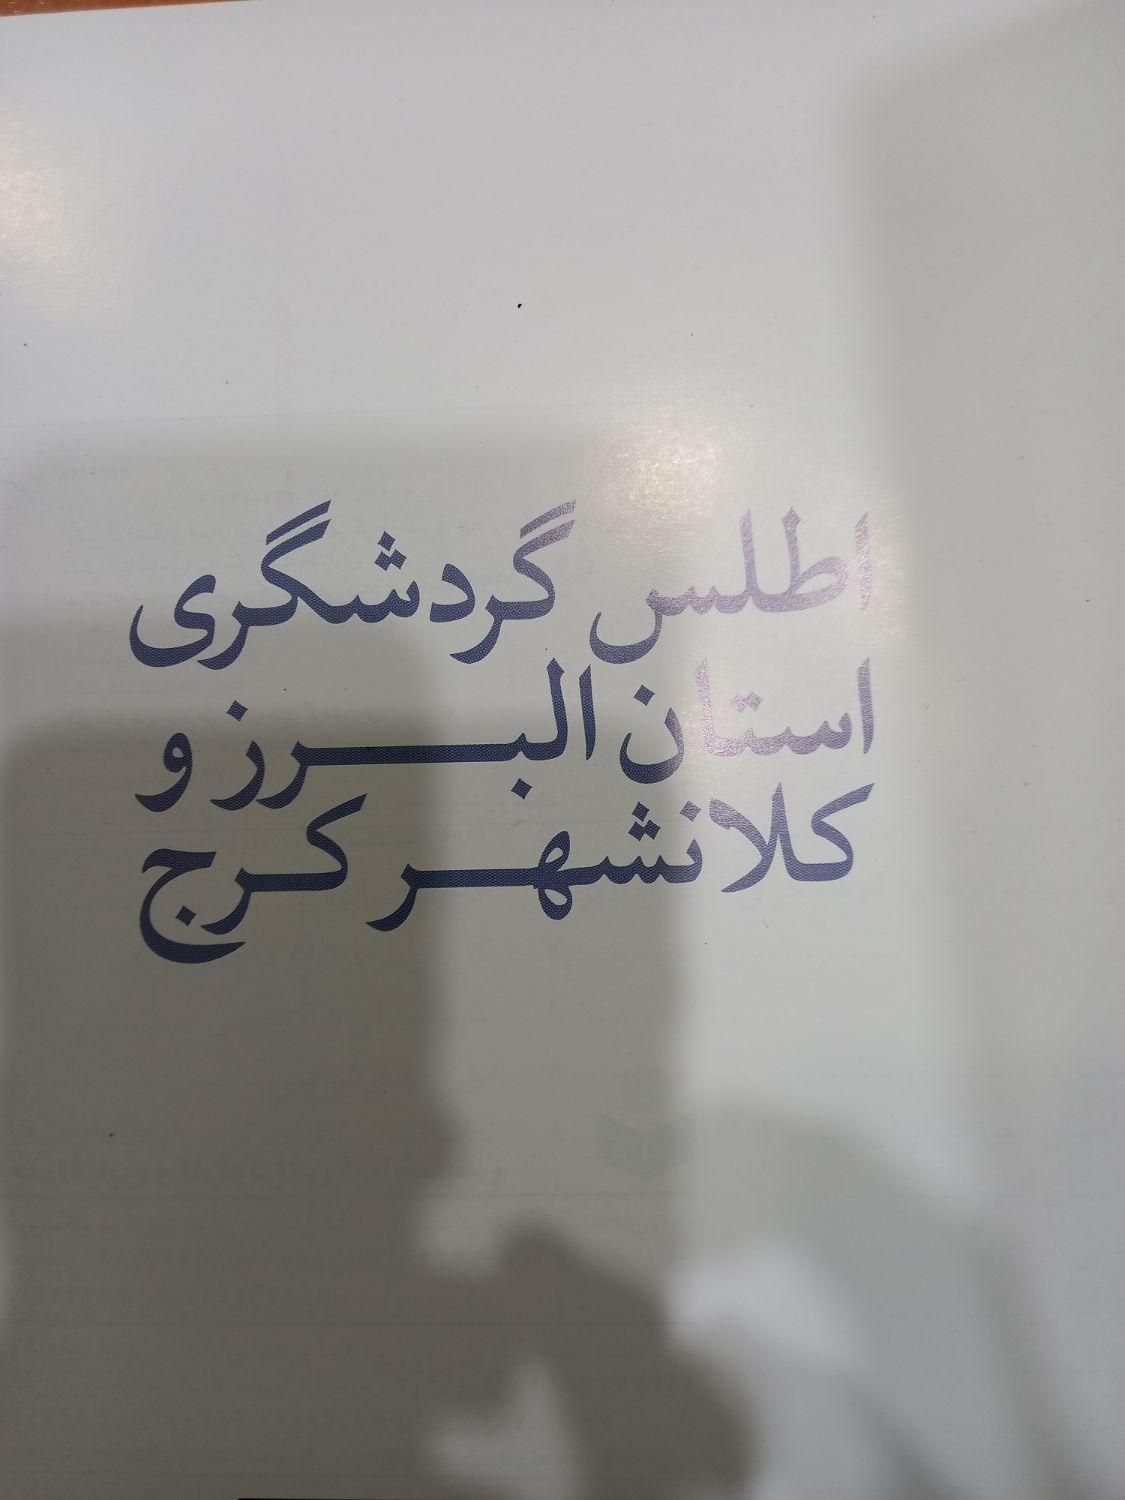 اطلس گردشگری
استان البرز و
کلانشهر کرج